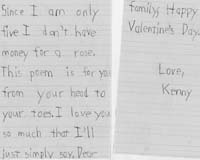 Since I am only
five I don't have
money for a rose.
This poem is for you
from your head to
your toes. I love you
so much that I'll
just simply say, Dear
family, Happy
Valentine's Day.
Love,
Kenny